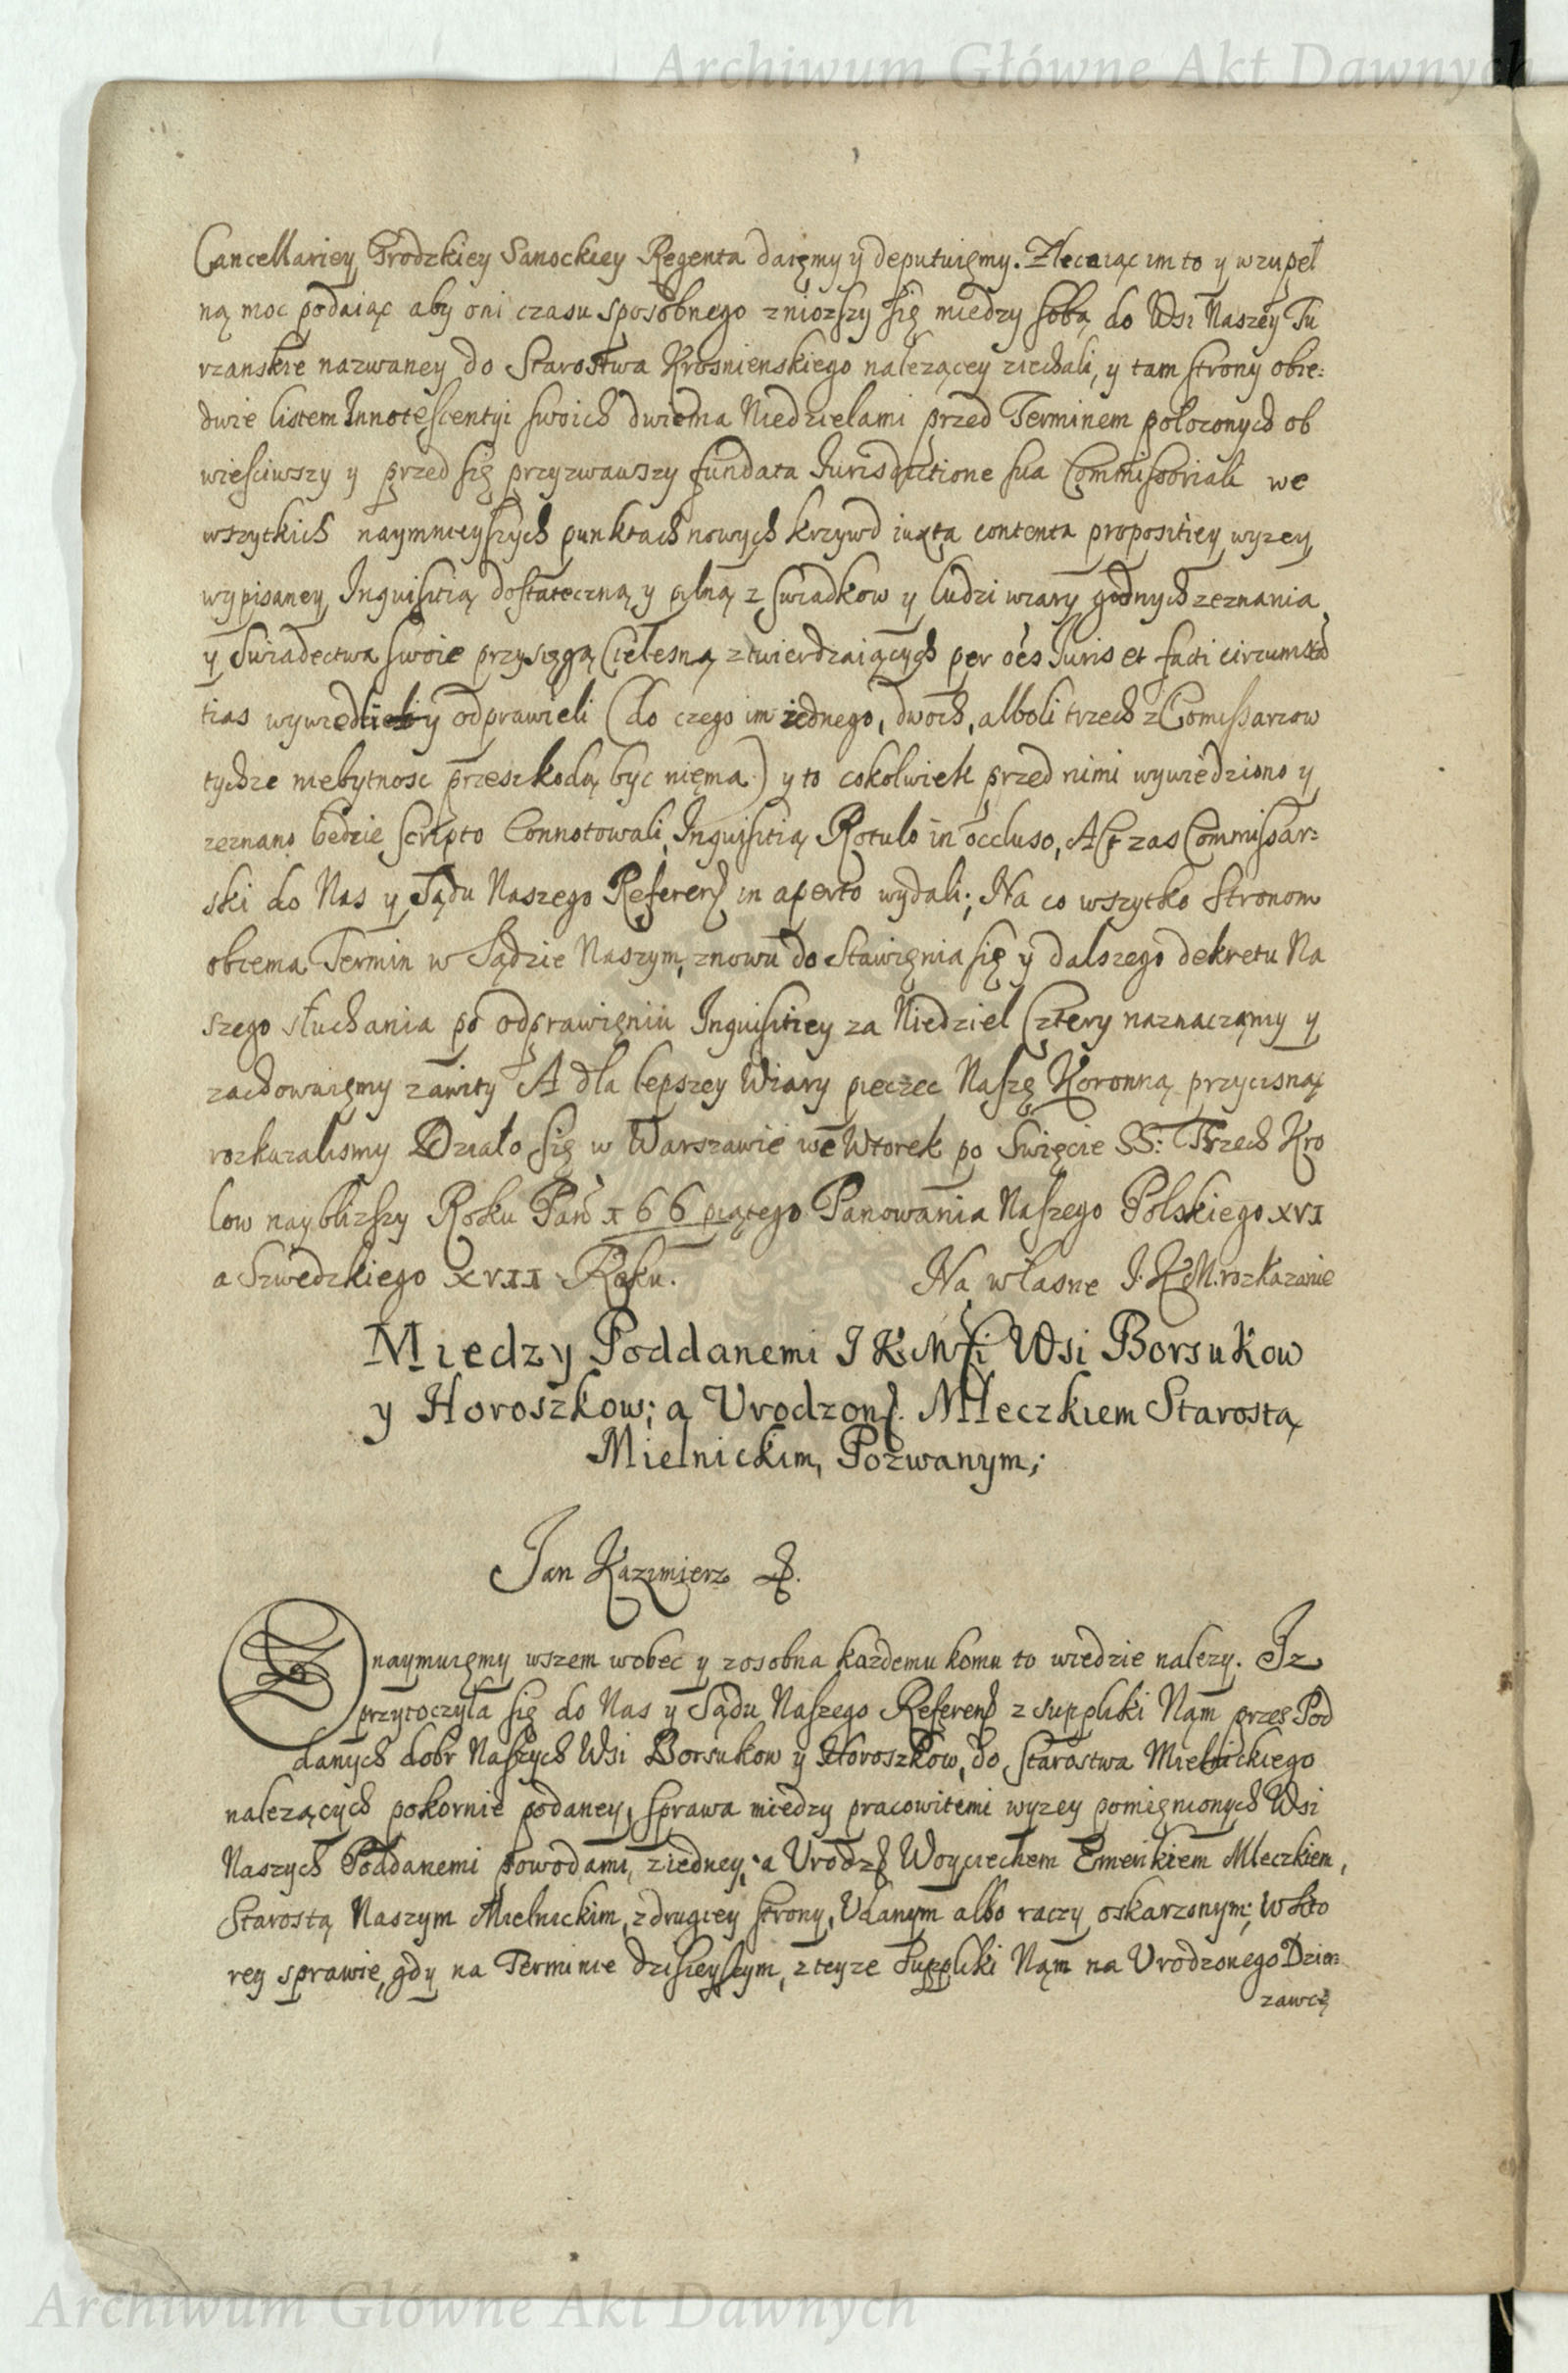 Archiwum Główne Akt Dawnych
Cancellariey Grodzkiey Sanockiey Regenta daięmy y deputuięmy. Zlecaiąc im to y wzupeł
ną moc podaiąc aby oni czasu sposobnego zniozszy się miedzy sobą do Wsi Naszey Tu
rzanskie nazwaney do Starostwa Krosnienskiego nalezącey ziechali, y tam strony obie:
dwie listem Innotescentyi swoich dwiema Niedzielami przed Terminem położonych ob
wiesciwszy y przed się przyzwawszy fundata Iurisdictione sua Commissoriali we
wszytkich naymnieyszych punktach nowych krzywd iuxta contenta propositiey wyzey
wypisaney Inquisitią dostateczną y pilną z swiadkow y ludzi wiary godnych zeznania
y swiadectwa swoie przysięgą Cielesną ztwierdzaiących per oes Iuris et facti circumstã
tias wywiedli y odprawieli (do czego im iednego, dwoch, alboli trzech z Comissarzow
tychze niebytnosc przeszkodą byc niema) y to cokolwiek przed nimi wywiedziono y
zeznano bedzie scripto Connotowali, Inquisitią Rotulo in occluso, Act zas Commissar:
ski do Nas y Sądu Naszego Referen in aperto wydali; Na co wszytko Stronom
obiema Termin w Sądzie Naszym, znowu do stawięnia się y dalszego dekretu Na
szego słuchania po odprawięniu Inquisitiey za Niedziel Cztery naznaczamy y
zachowuięmy zawity A dla lepszey Wiary pieczec Naszę Koronną przycisnąć
rozkazalismy Działo się w Warszawie we Wtorek po Swięcie SS: Trzech Kro
low nayblizszy Roku Pań 166 piątego Panowania Naszego Polskiego XVI
a Szwedzkiego XVII Roku. Na własne J.K.M. rozkazanie
Miedzy Poddanemi J K Mści Wsi Borsukow
y Horoszkow; a Urodzon. Mleczkiem Starostą
Mielnickim, Pozwanym;
Jan Kazimierz &.
Znaymuięmy wszem wobec y zosobna kazdemu komu to wiedzie nalezy. Iz
przytoczyla się do Nas y Sądu Naszego Referen z suppliki Nąm przez Pod
danych dobr Naszych Wsi Borsukow y Horoszkow, do Starostwa Mielnickiego
nalezących pokornie podaney, sprawa miedzy pracowitemi wyzey pomięnionych Wsi
Naszych Poddanemi powodami, ziedney, a Urodz Woyciechem Emerikiem Mleczkiem,
Starostą Naszym Mielnickim, z drugiey strony, Udanym albo raczy oskarzonym; W kto
rey sprawie, gdy na Terminie dzisieyszym, z teyze Suppliki Nąm na Urodzonego Dzier:
zawcę
Archiwum Główne Akt Dawnych